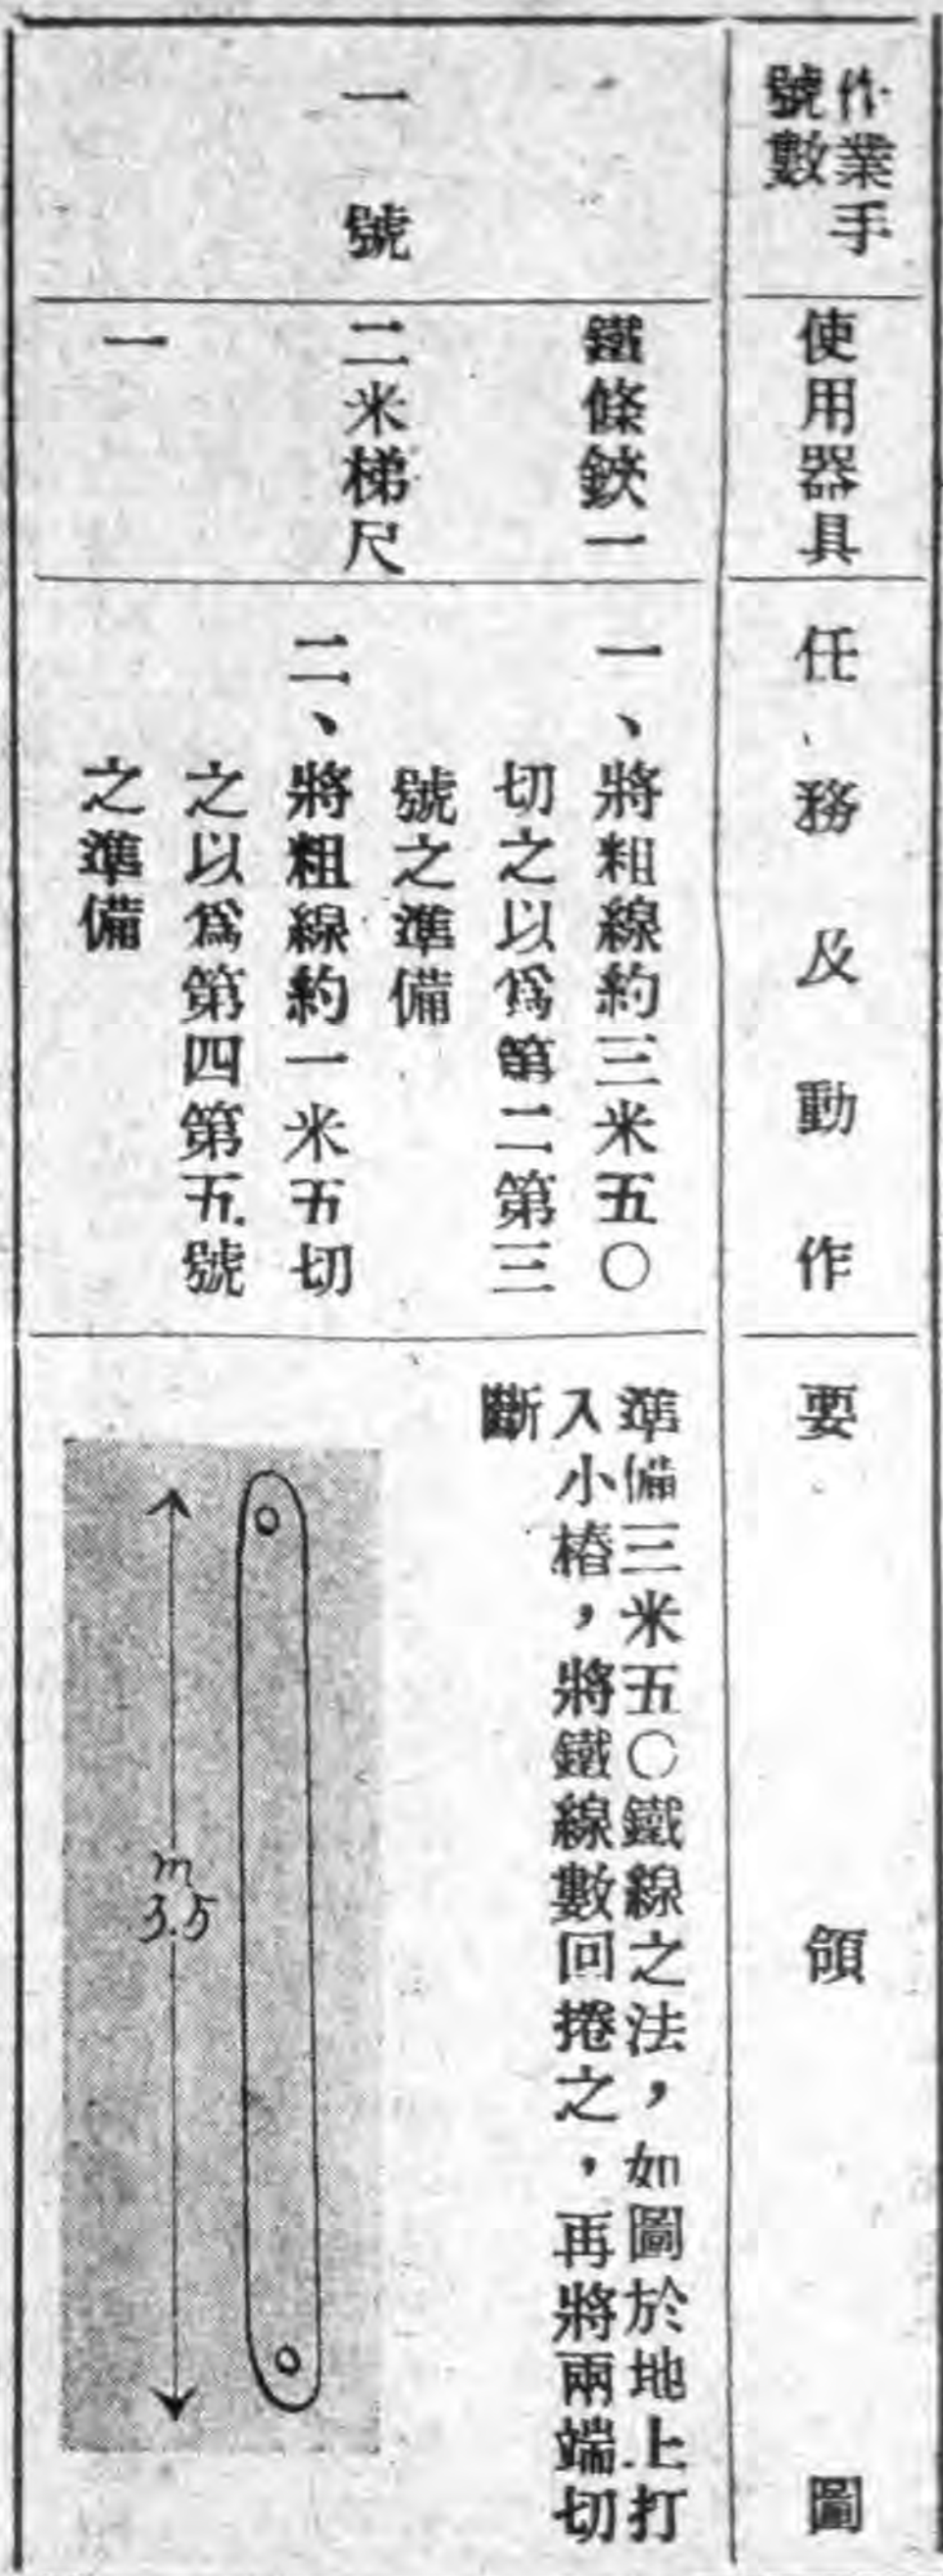 作業手
號數
使用器具
任務及動作
要領圖
一號
鐵條鋏一
二米梯尺
一
一、將粗線約三米五〇
切之以爲第二第三
號之準備
二、將粗線約一米五切
之以爲第四第五號
之準備
準備三米五〇鐵線之法，如圖於地上打
入小樁，將鐵線數回捲之，再將兩端切
斷
m
3.5